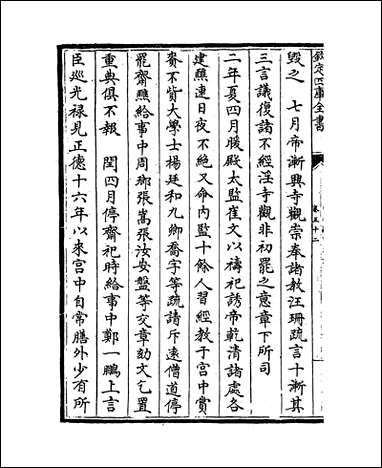 欽定四庫全書
卷五十二
毀之　七月帝漸興寺觀崇奉諸教汪珊疏言十漸其
三言議復諸不經淫寺觀非初罷之意章下所司
二年夏四月暖殿太監崔文以禱祀誘帝乾清諸處各
建醮連日夜不絶又命内監十餘人習經教于宫中賞
賚不貲大學士楊廷和九卿喬宇等疏請斥逺僧道停
罷齋醮給事中周瑯張嵩張汝安盤等交章劾文乞置
重典俱不報　閏四月停齋祀時給事中鄭一鵬上言
臣巡光禄見正德十六年以來宫中自常膳外少有所